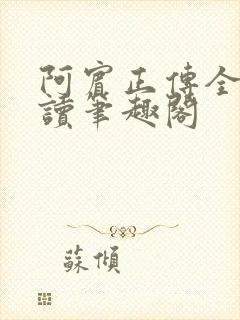 阿賓正傳全
讀筆趣閣
蘇傾